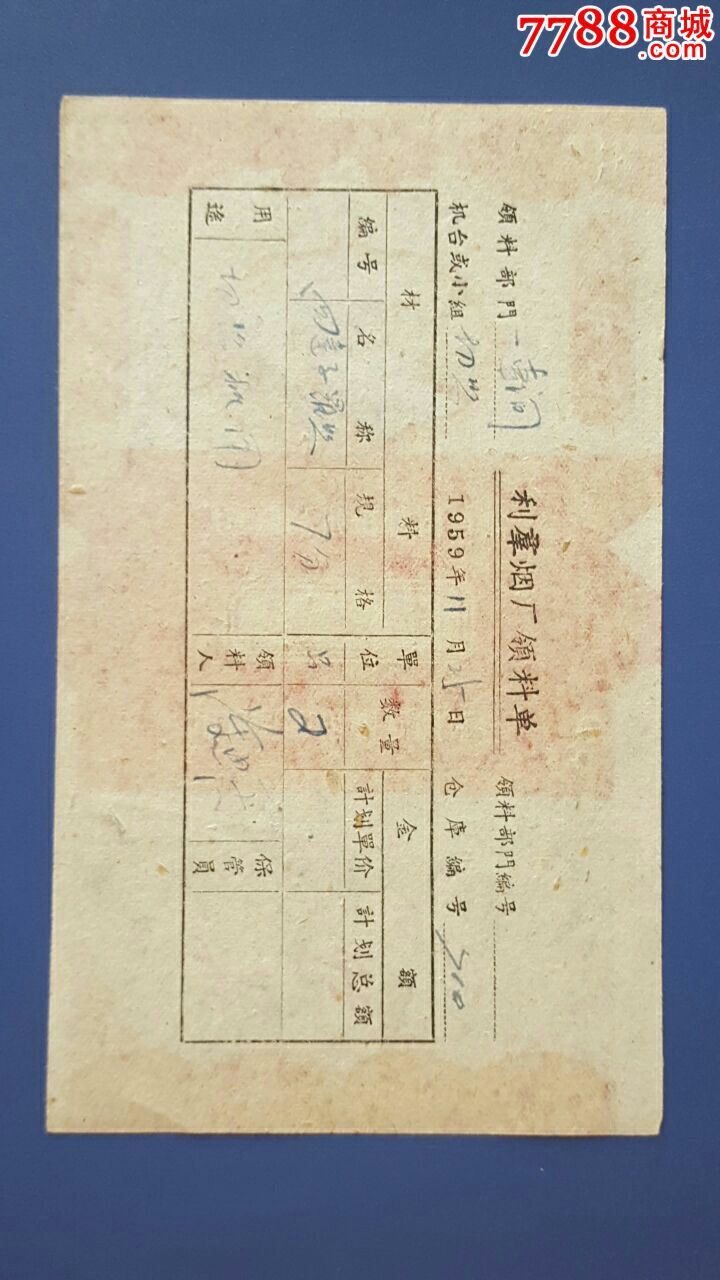 7788商城
.com
利羣烟厂領料单
領料部門 一車间
領料部門編号
机台或小组 切丝
1959年 11月 25日
仓库編号
材料
單位
数量
金額
編号
名称
規格
計划單价
計划总額
7分
只
2
用途
切丝机用
領料人
保管員